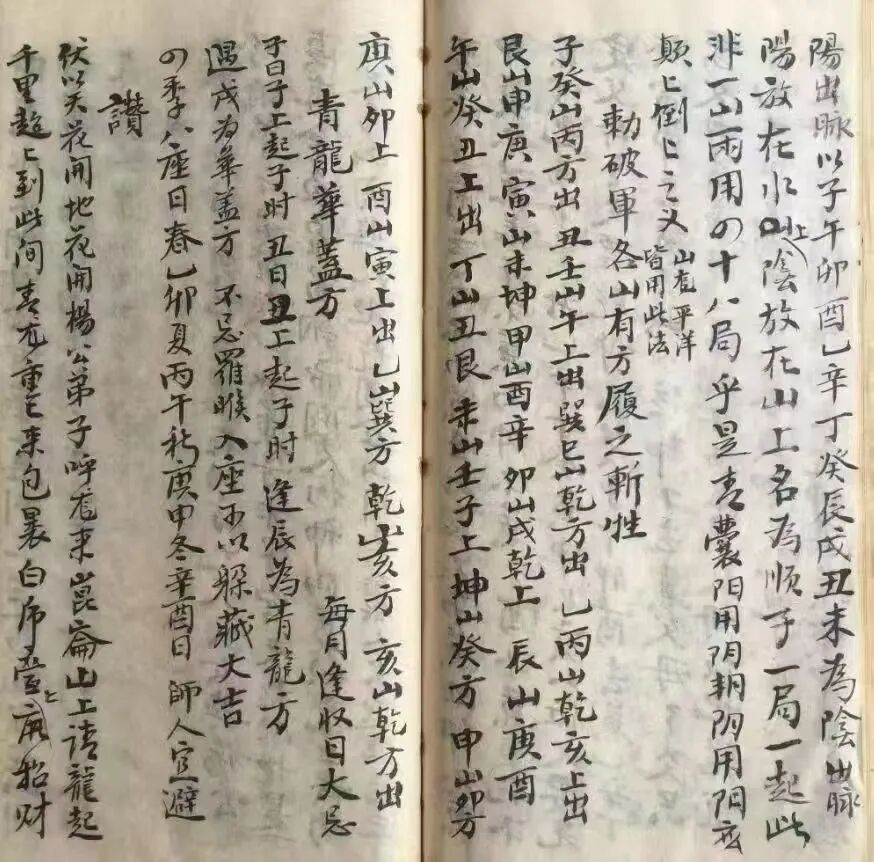 陽出脉以子午卯酉乙辛丁癸辰戌丑未為陰出脉
陽放在水口上陰放在山上名為順子一局一起此
非一山両用四十八局乎是青囊阳用阴朝阴用阳应
顛〻倒〻之义
山龙平洋
皆用此法
勅破軍各山有方履之斬牲
子癸山丙方出丑壬山午上出巽巳山乾方出乙丙山乾亥上出
艮山申庚寅山未坤甲山酉辛卯山戌乾上辰山庚酉
午山癸丑上出丁山丑艮未山壬子上坤山癸方申山卯方
庚山卯上酉山寅上出乙山巽方乾山亥方亥山乾方出
青龍華蓋方
每月逢收日大忌
子日子上起子时丑日丑上起子时逢辰為青龍方
遇戌為華盖方不忌羅睺入座可以躲藏大吉
四季八座日春乙卯夏丙午秋庚申冬辛酉日師人宜避
讃
伏以天花開地花開楊公弟子呼龙来崑崙山上請龍起
千里超〻到此间青龙重〻来包裹白虎叠〻庶招财